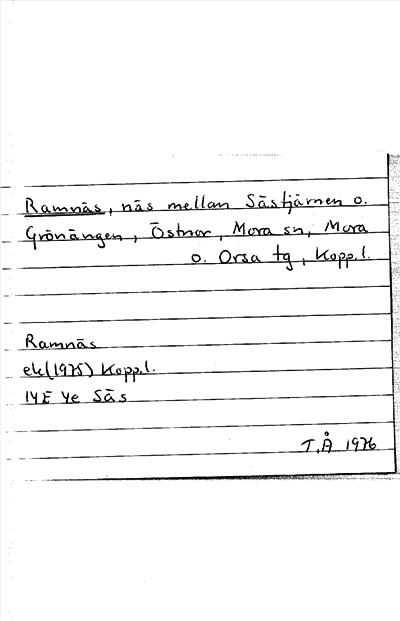 Ramnäs, näs mellan Sästjärnen o.
Grönängen, Östnor, Mora sn, Mora
o. Orsa tg, Kopp.l.
Ramnäs
ek (1975) Kopp.l.
14E 4e Säs
T.Å 1976